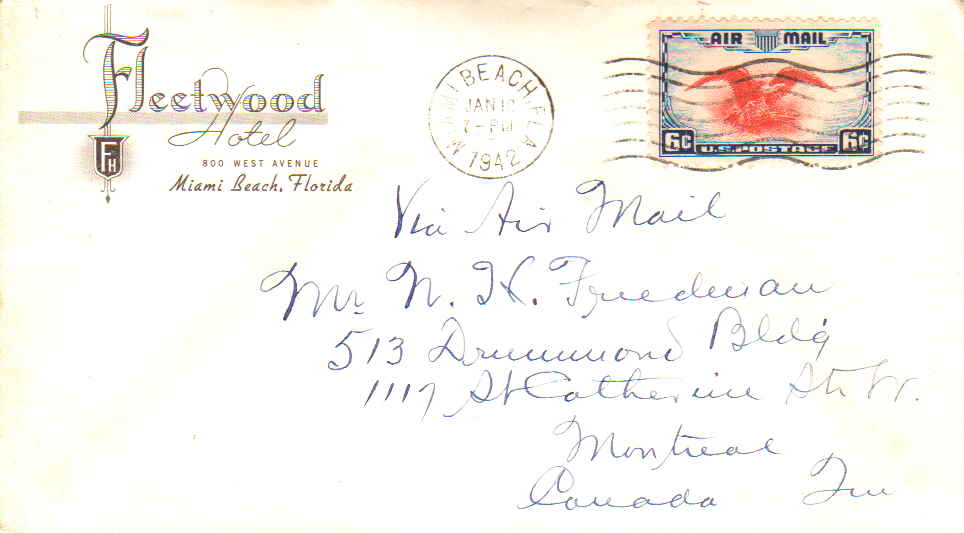 Fleetwood
Hotel
FH
800 WEST AVENUE
Miami Beach, Florida
MIAMI BEACH, FLA
JAN
7-PM
1942
AIR MAIL
6c U.S. POSTAGE 6c
Via Air Mail
Mr. N. H. Friedman
513 Drummond Bldg
1117 St Catherine Str W.
Montreal
Canada